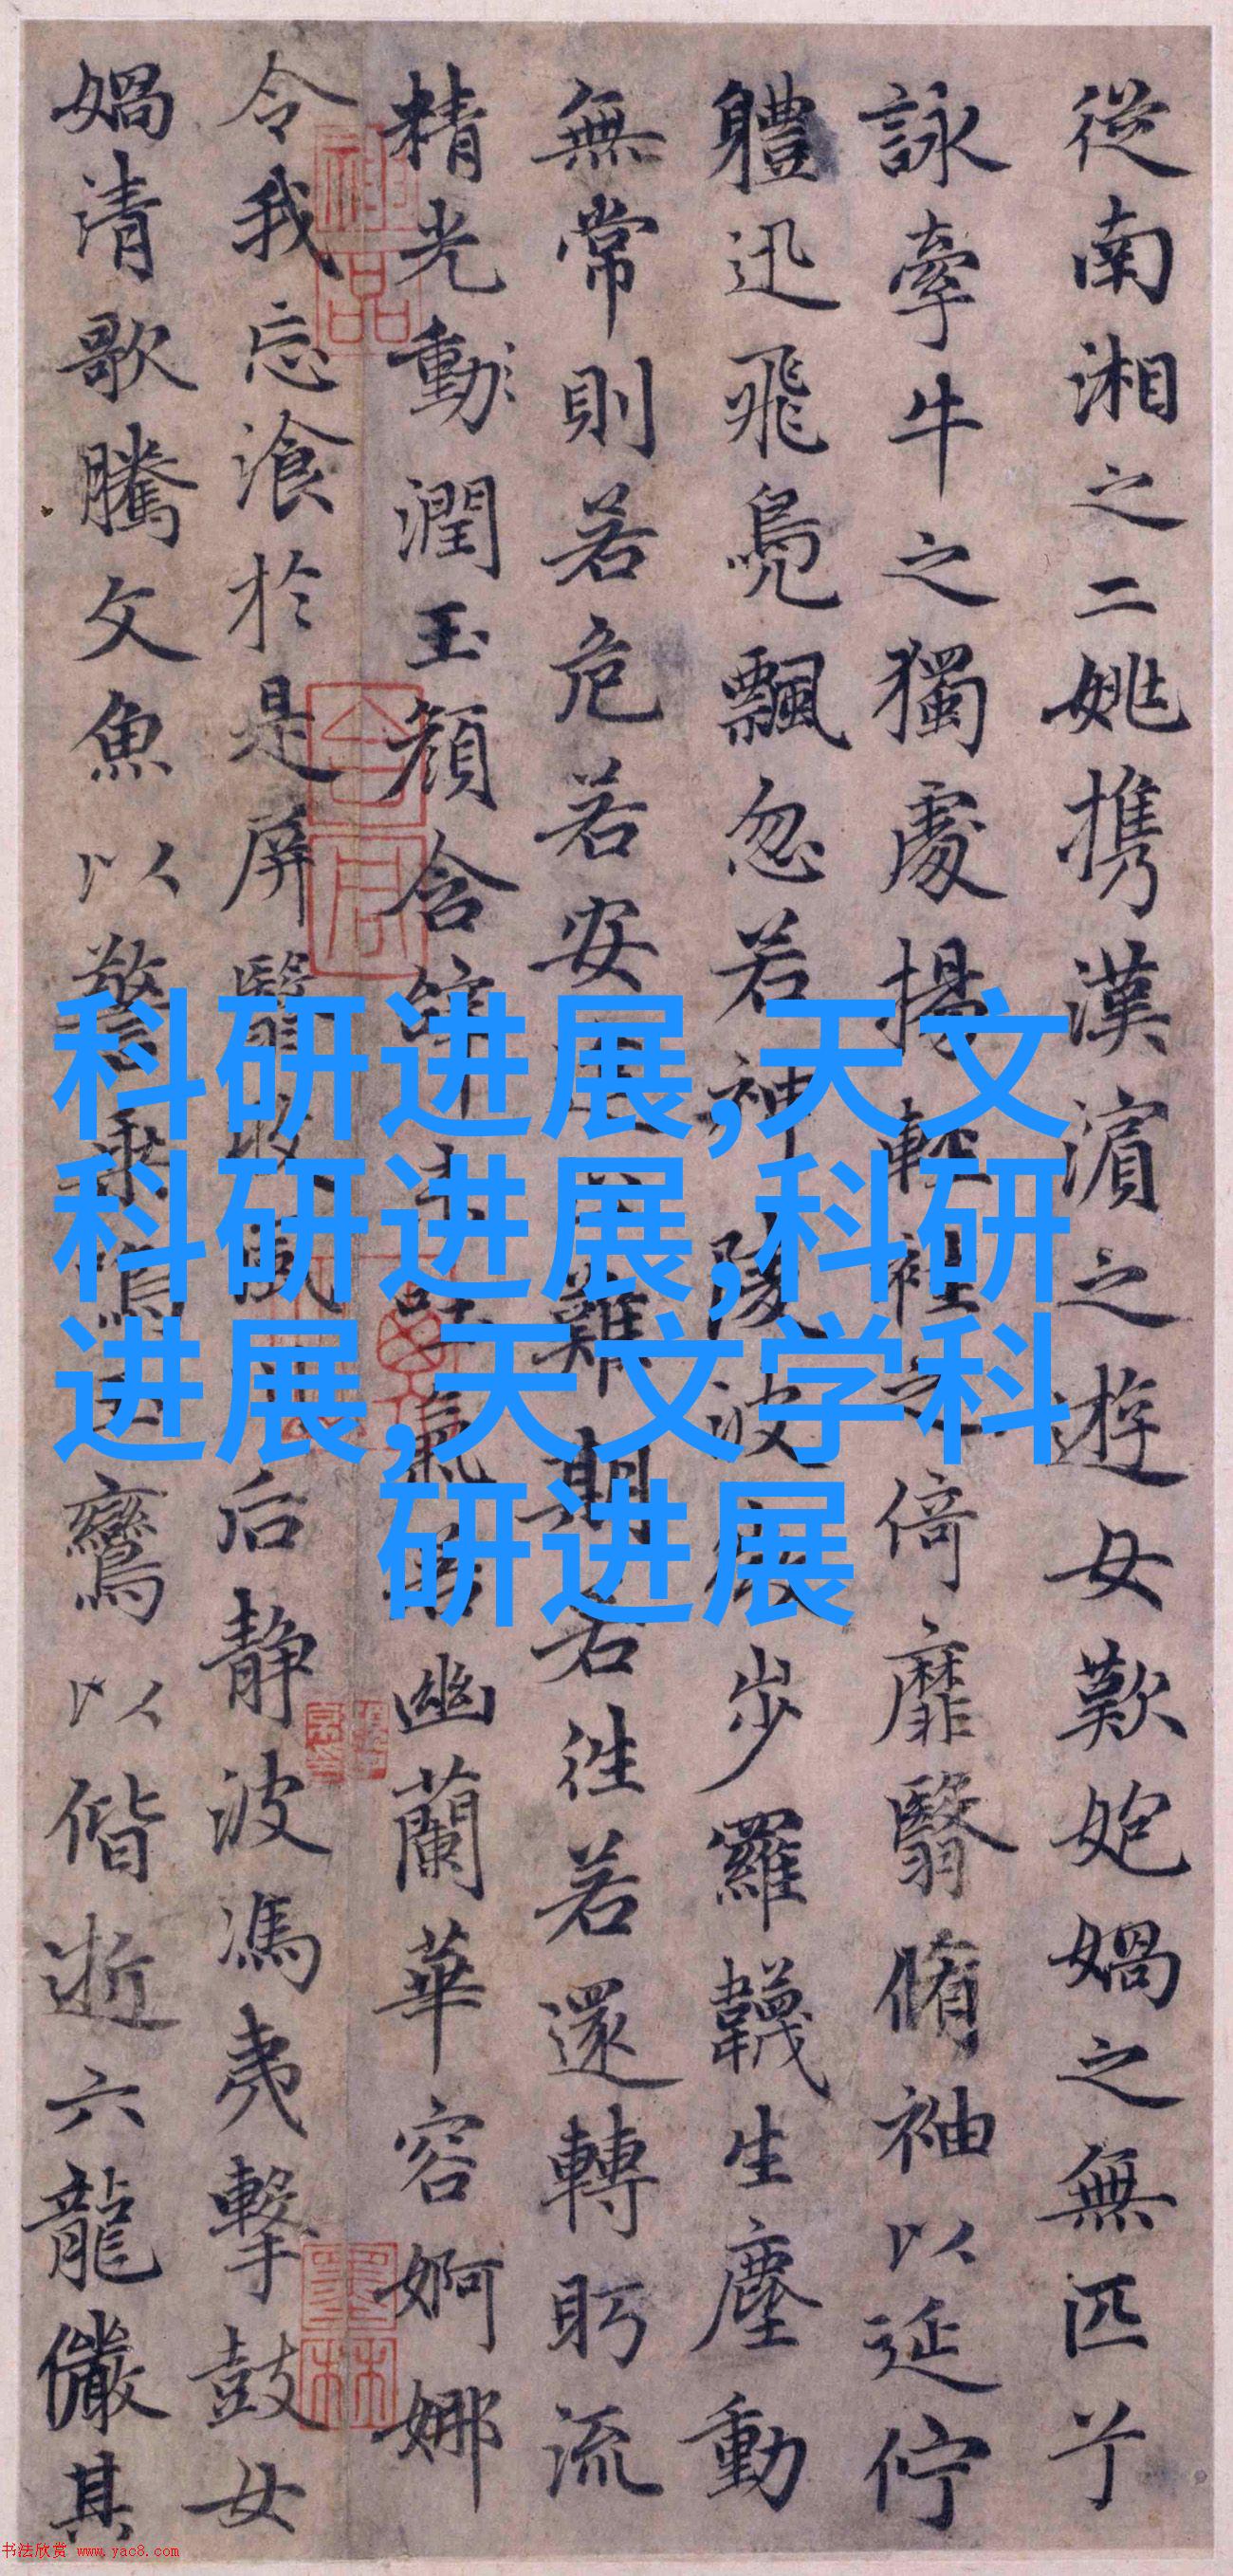 從南湘之二姚携漢濵之遊女歎媧之無匹兮
詠牽牛之獨處揚輕袿之倚靡翳脩袖以延佇
軆迅飛鳧飄忽若神陵波微步羅韈生塵動
無常則若危若安進止難期若往若還轉眄流
精光動潤玉顏含辭未吐氣若幽蘭華容婀娜
令我忘飡於是屏翳收風川后静波馮夷擊鼓女
媧清歌騰文魚以警乘鳴玉鸞以偕逝六龍儼其
科研进展,天文
科研进展,科研
进展,天文学科
研进展
书法欣赏 www.yac8.com